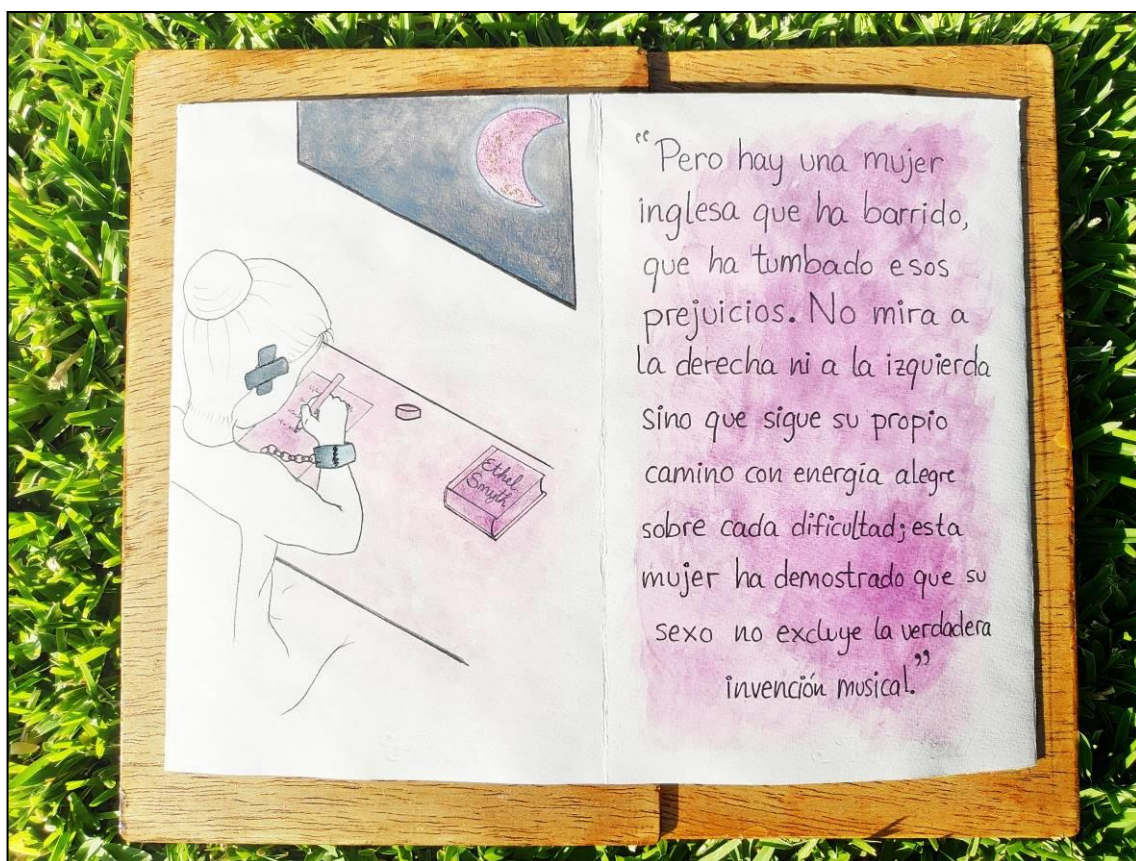 Ethel
Smyth
“Pero hay una mujer
inglesa que ha barrido,
que ha tumbado esos
prejuicios. No mira a
la derecha ni a la izquierda
sino que sigue su propio
camino con energía alegre
sobre cada dificultad; esta
mujer ha demostrado que su
sexo no excluye la verdadera
invención musical.”